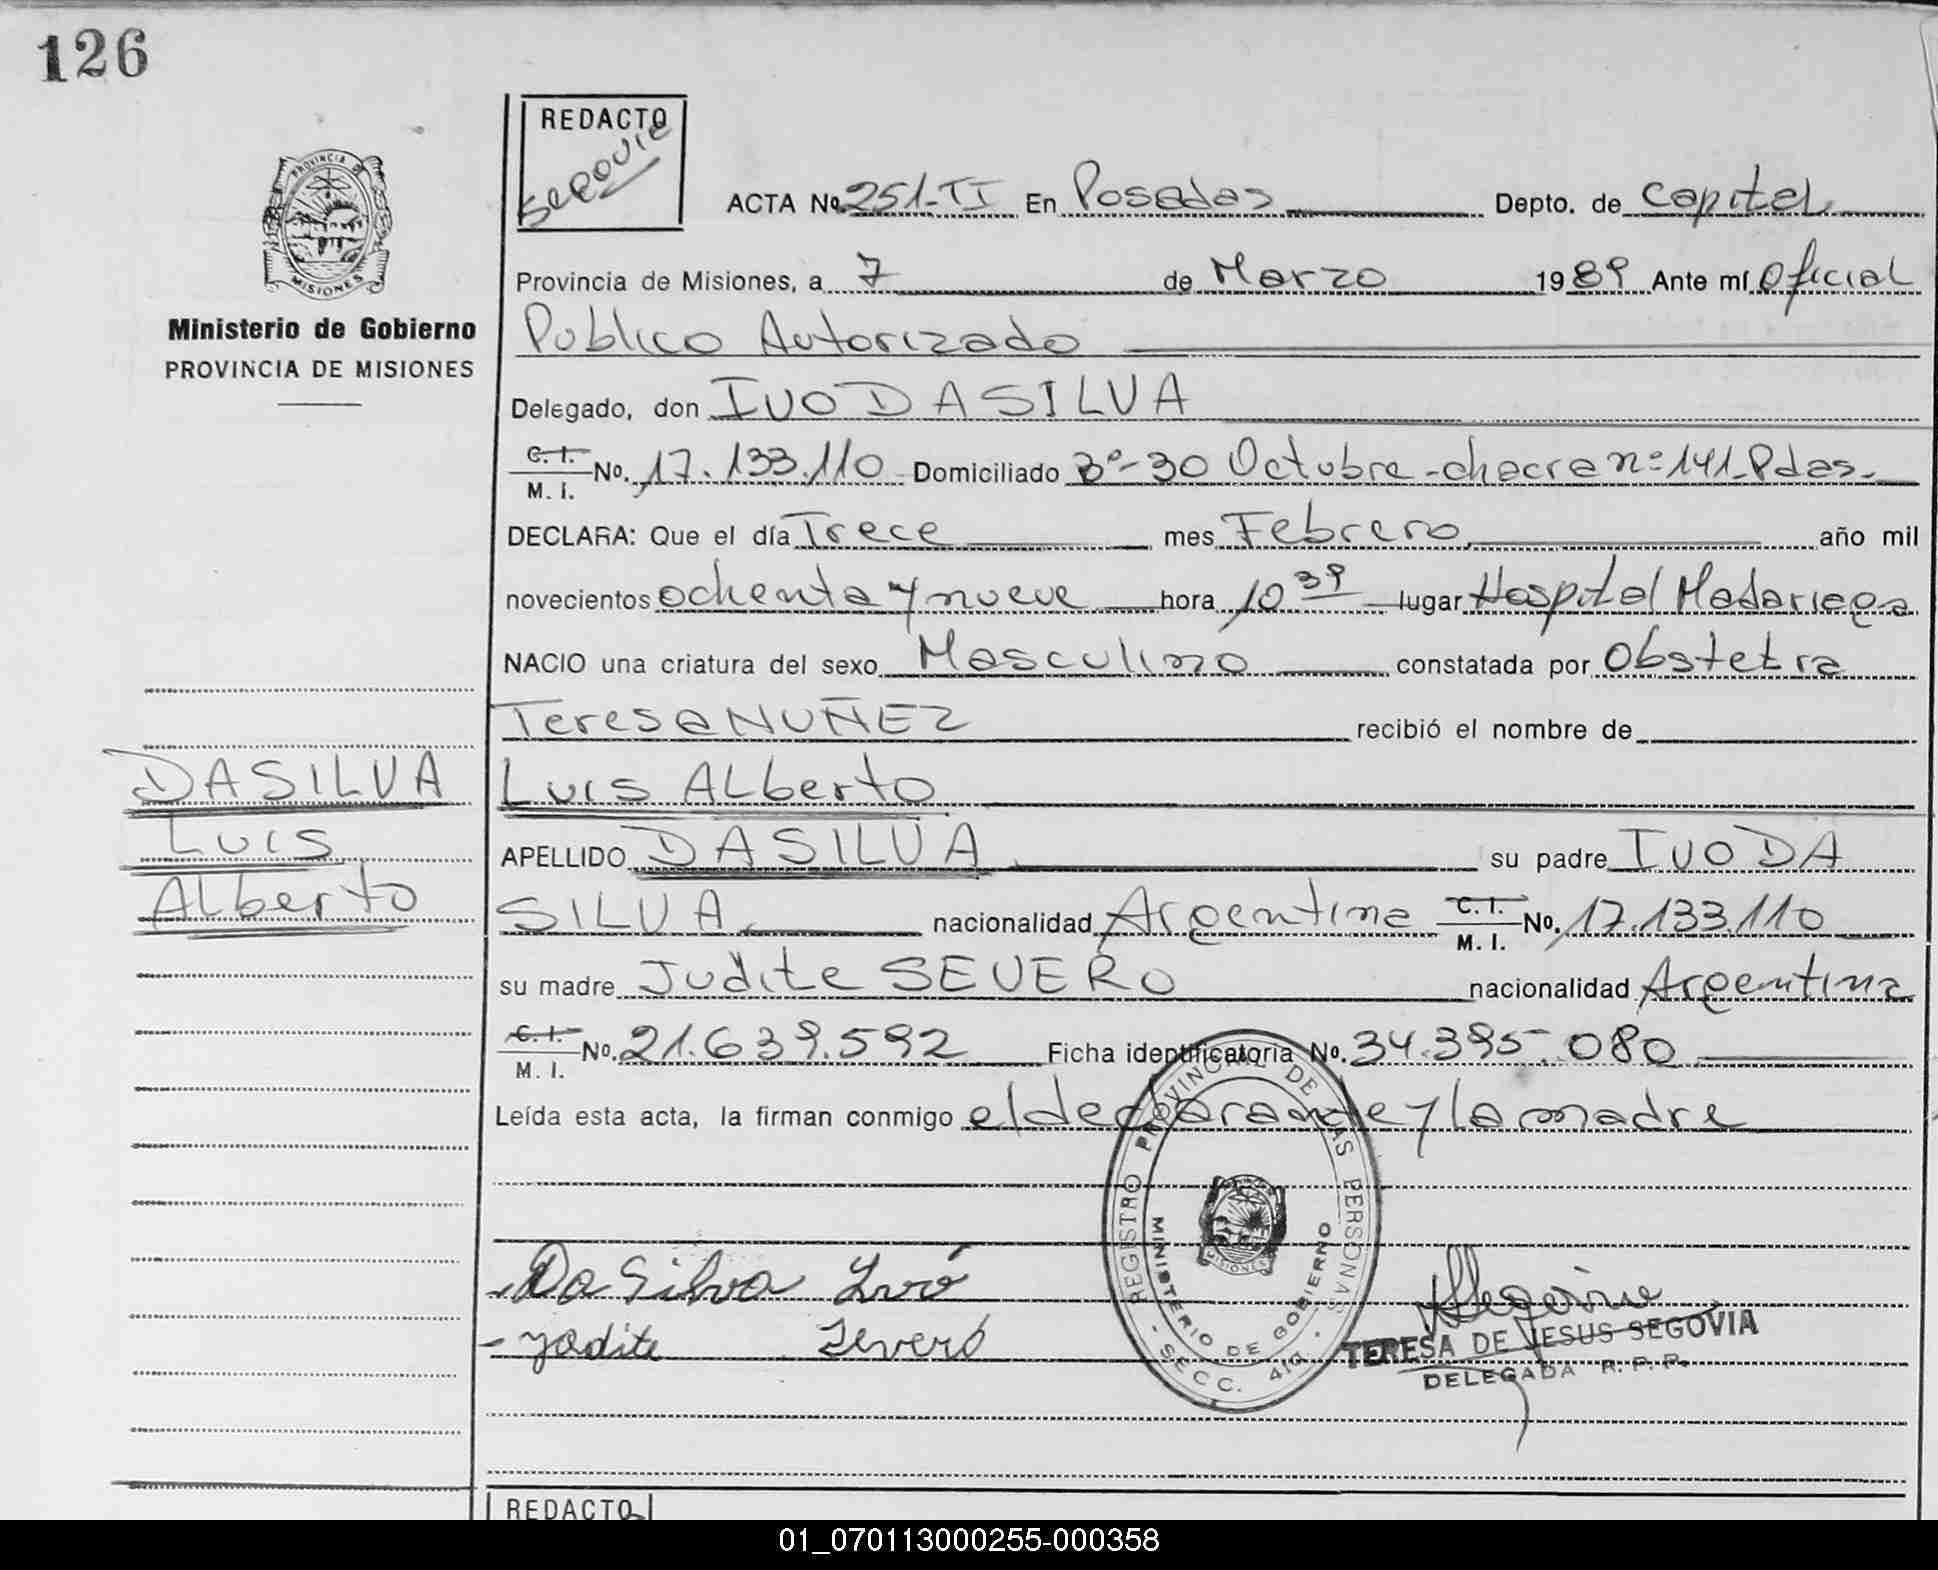 126
REDACTO
Segovia
ACTA No. 251-TI En Posadas Depto. de Capital
PROVINCIA DE
MISIONES
Provincia de Misiones, a 7 de Marzo 1989 Ante mí Oficial
Ministerio de Gobierno
PROVINCIA DE MISIONES
Publico Autorizado
Delegado, don IVO DA SILVA
C. I.
M. I. No. 17.133.110 Domiciliado Bº-30 Octubre - chacra nº 141-Pdas.-
DECLARA: Que el día Trece mes Febrero año mil
novecientos ochenta y nueve hora 10 39 lugar Hospital Madariaga
NACIO una criatura del sexo Masculino constatada por Obstetra
Teresa NUÑEZ recibió el nombre de
DA SILVA
Luis
Alberto
Luis Alberto
APELLIDO DA SILVA su padre IVO DA
SILVA nacionalidad Argentina C. I.
M. I. No. 17.133.110
su madre Judite SEVERO nacionalidad Argentina
C. I.
M. I. No. 21.639.592 Ficha identificatoria No. 34.395.080
Leída esta acta, la firman conmigo el declarante y la madre
REGISTRO PROVINCIAL DE LAS PERSONAS
MINISTERIO DE GOBIERNO
MISIONES
- SECC. 4ta. -
- Da Silva Ivó
- Judite Severó
Segovia
TERESA DE JESUS SEGOVIA
DELEGADA R. P. P.
REDACTO
01_070113000255-000358